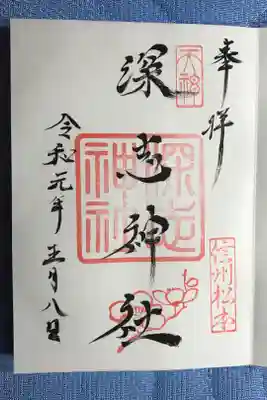 奉拝
信州松本
深志神社
深志神社
令和元年五月八日